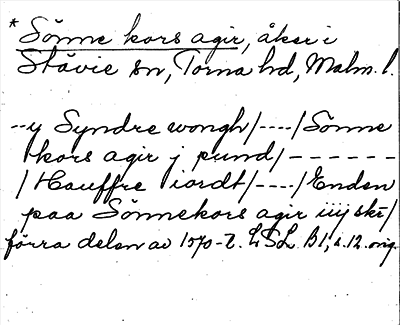 * Sönne kors agir, åker i
Stävie sn, Torna hd, Malm. l.
--y Syndre wongh/----/Sönne
kors agir j pund/------
/Hauffre iordt/----/Enden
paa Sönnekors agir iiij ske/
förra delen av 1570-t. LSL B1, s. 12. orig.